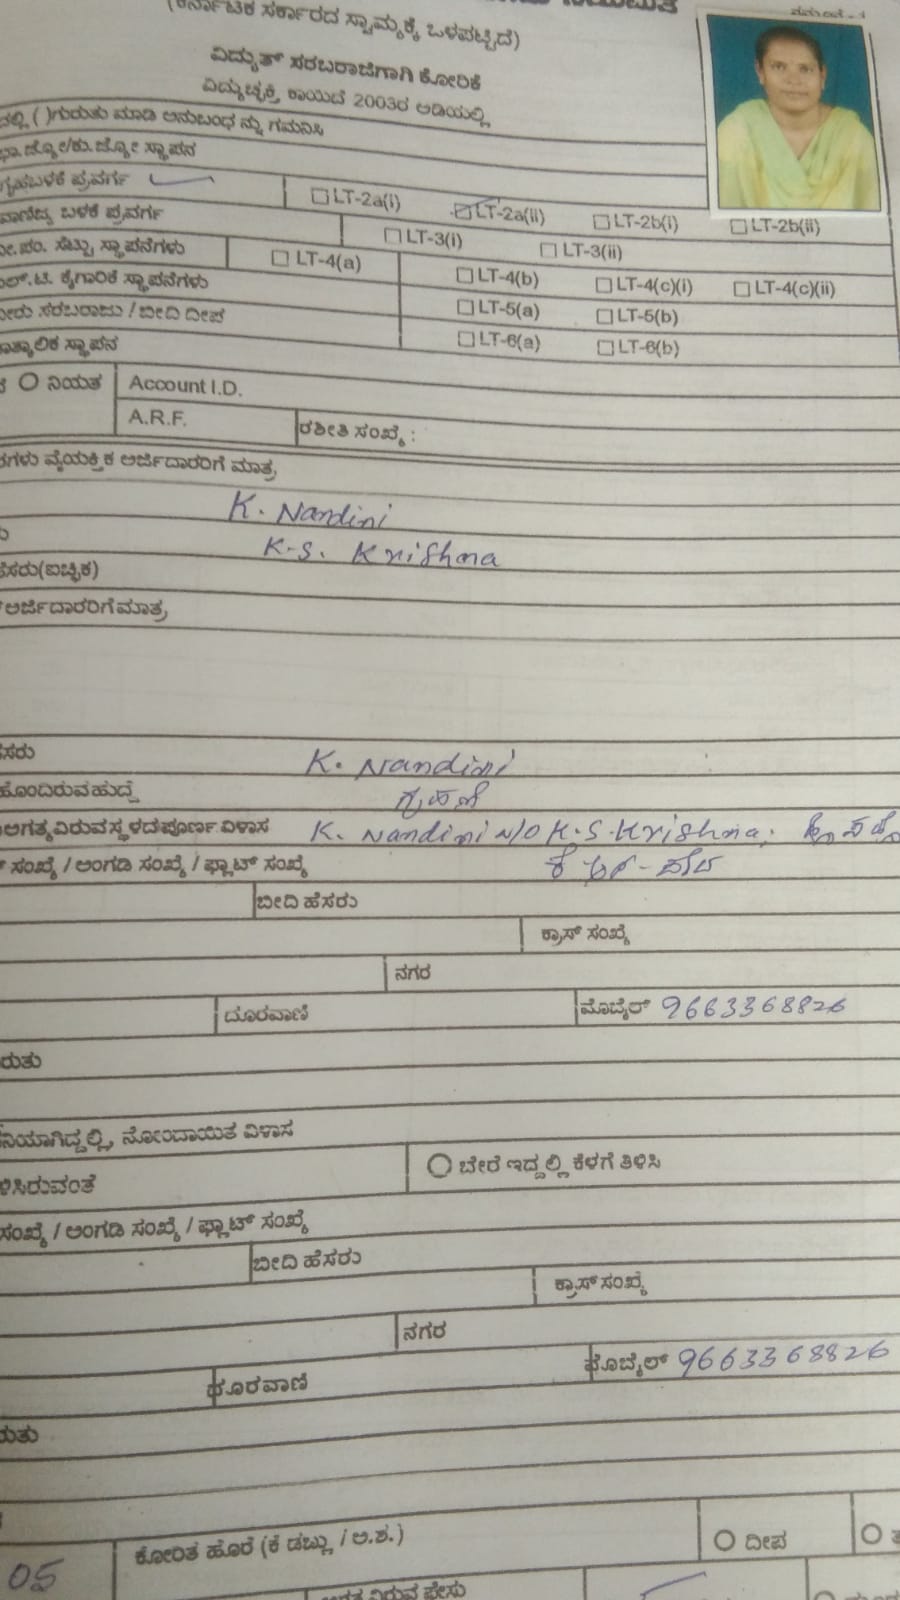 (ಕರ್ನಾಟಕ ಸರ್ಕಾರದ ಸ್ವಾಮ್ಯಕ್ಕೆ ಒಳಪಟ್ಟಿದೆ)
ವಿದ್ಯುತ್ ಸರಬರಾಜಿಗಾಗಿ ಕೋರಿಕೆ
ವಿದ್ಯುಚ್ಛಕ್ತಿ ಕಾಯಿದೆ 2003ರ ಅಡಿಯಲ್ಲಿ
( )ಗುರುತು ಮಾಡಿ ಅನುಬಂಧ ನ್ನು ಗಮನಿಸಿ
ಸ್ಥಾಪನ
ಗೃಹಬಳಕೆ ಪ್ರವರ್ಗ
LT-2a(i) LT-2a(ii) LT-2b(i) LT-2b(ii)
ಬಳಕೆ ಪ್ರವರ್ಗ LT-3(i) LT-3(ii)
ಸೆಟ್ಟು ಸ್ಥಾಪನೆಗಳು LT-4(a) LT-4(b) LT-4(c)(i) LT-4(c)(ii)
ಕೈಗಾರಿಕೆ ಸ್ಥಾಪನೆಗಳು LT-5(a) LT-5(b)
ಸರಬರಾಜು / ಬೀದಿ ದೀಪ LT-6(a) LT-6(b)
ಸ್ಥಾಪನ
ನಿಯತ Account I.D.
A.R.F. ರಶೀತಿ ಸಂಖ್ಯೆ :
ವೈಯಕ್ತಿಕ ಅರ್ಜಿದಾರರಿಗೆ ಮಾತ್ರ
K. Nandini
K-S. Krishna
(ಐಚ್ಛಿಕ)
ಅರ್ಜಿದಾರರಿಗೆ ಮಾತ್ರ
K. Nandini
ಹೊಂದಿರುವ ಹುದ್ದೆ ಗೃಹಣಿ
ಅಗತ್ಯವಿರುವ ಸ್ಥಳದ ಪೂರ್ಣ ವಿಳಾಸ K. Nandini W/O K.S.Krishna,
ಸಂಖ್ಯೆ / ಅಂಗಡಿ ಸಂಖ್ಯೆ / ಫ್ಲಾಟ್ ಸಂಖ್ಯೆ
ಬೀದಿ ಹೆಸರು
ಕ್ರಾಸ್ ಸಂಖ್ಯೆ
ನಗರ
ದೂರವಾಣಿ ಮೊಬೈಲ್ 9663368826
ನೋಂದಾಯಿತ ವಿಳಾಸ
ಬೇರೆ ಇದ್ದಲ್ಲಿ ಕೆಳಗೆ ತಿಳಿಸಿ
ಸಂಖ್ಯೆ / ಅಂಗಡಿ ಸಂಖ್ಯೆ / ಫ್ಲಾಟ್ ಸಂಖ್ಯೆ
ಬೀದಿ ಹೆಸರು
ಕ್ರಾಸ್ ಸಂಖ್ಯೆ
ನಗರ
ದೂರವಾಣಿ ಮೊಬೈಲ್ 9663368826
05 ಕೋರಿತ ಹೊರೆ (ಕೆ ಡಬ್ಲ್ಯು / ಅ.ಶ.) ದೀಪ